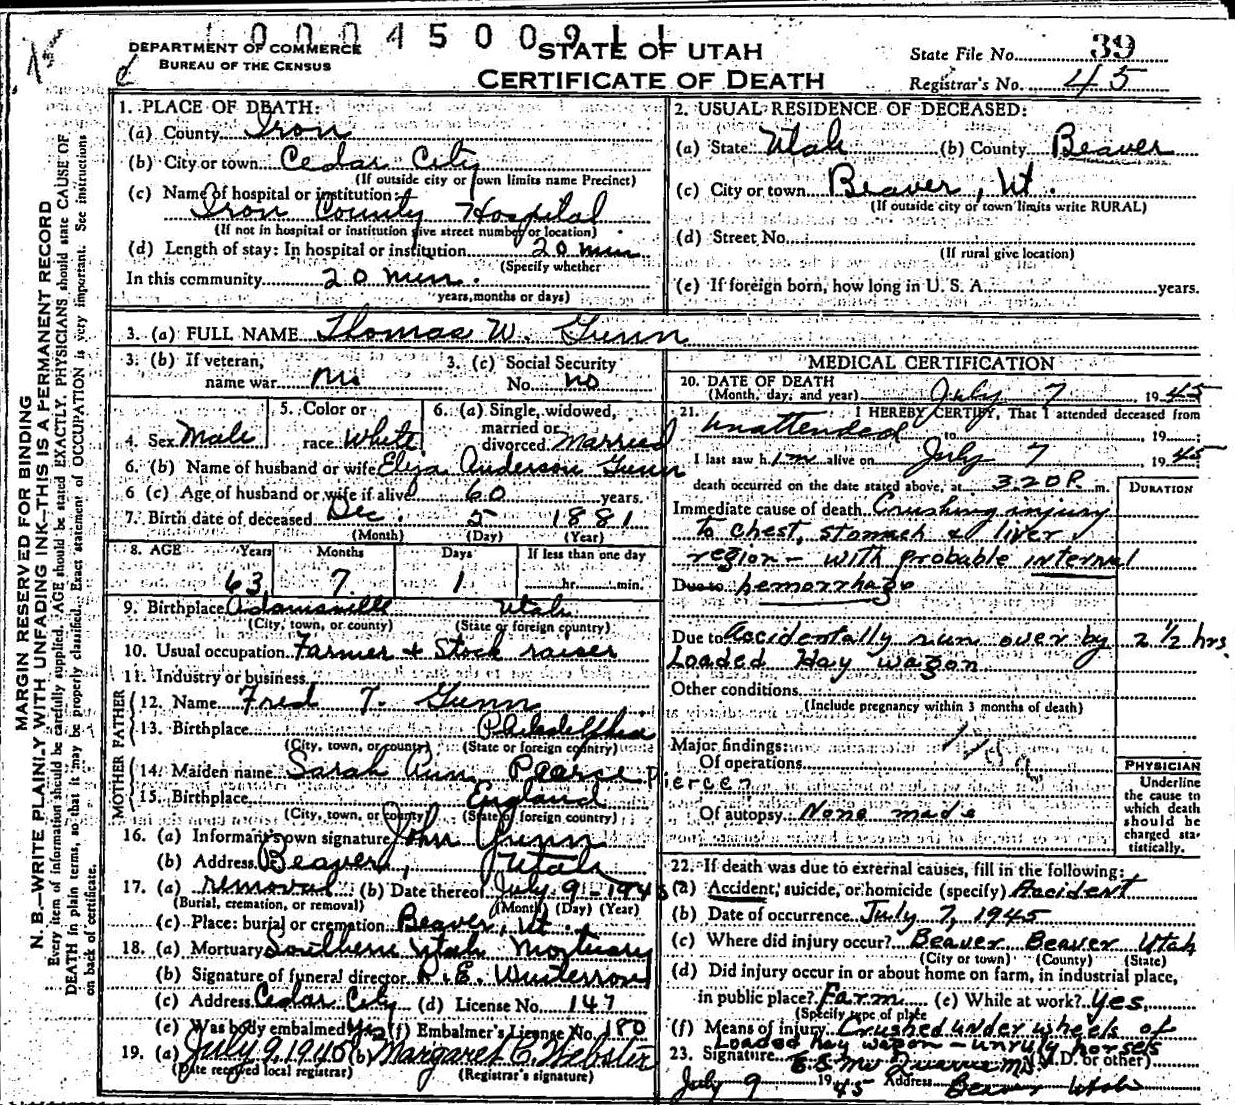 0004500911
DEPARTMENT OF COMMERCE
BUREAU OF THE CENSUS
STATE OF UTAH
CERTIFICATE OF DEATH
State File No. 39
Registrar's No. 45
MARGIN RESERVED FOR BINDING
N. B.—WRITE PLAINLY WITH UNFADING INK—THIS IS A PERMANENT RECORD
Every item of information should be carefully supplied. AGE should be stated EXACTLY. PHYSICIANS should state CAUSE OF
DEATH in plain terms, so that it may be properly classified. Exact statement of OCCUPATION is very important. See instructions
on back of certificate.
1. PLACE OF DEATH:
(a) County Iron
(b) City or town Cedar City
(If outside city or town limits name Precinct)
(c) Name of hospital or institution:
Iron County Hospital
(If not in hospital or institution give street number or location)
(d) Length of stay: In hospital or institution 20 min
(Specify whether
In this community 20 min.
years, months or days)
2. USUAL RESIDENCE OF DECEASED:
(a) State Utah (b) County Beaver
(c) City or town Beaver, Ut.
(If outside city or town limits write RURAL)
(d) Street No.
(If rural give location)
(e) If foreign born, how long in U. S. A. years.
3. (a) FULL NAME Thomas W. Gunn
3. (b) If veteran,
name war no
3. (c) Social Security
No. no
4. Sex Male
5. Color or
race White
6. (a) Single, widowed,
married or
divorced Married
6. (b) Name of husband or wife Eliza Anderson Gunn
6 (c) Age of husband or wife if alive 60 years.
7. Birth date of deceased Dec. 5 1881
(Month) (Day) (Year)
8. AGE Years Months Days If less than one day
63 7 1 hr. min.
9. Birthplace Adamsville Utah
(City, town, or county) (State or foreign country)
10. Usual occupation Farmer + Stock raiser
11. Industry or business
FATHER
12. Name Fred T. Gunn
13. Birthplace Philadelphia
(City, town, or county) (State or foreign country)
MOTHER
14. Maiden name Sarah Ann Pearce Pierce?
15. Birthplace England
(City, town, or county) (State or foreign country)
16. (a) Informant's own signature John Gunn
(b) Address Beaver, Utah
17. (a) removal (b) Date thereof July 9-1945
(Burial, cremation, or removal) (Month) (Day) (Year)
(c) Place: burial or cremation Beaver, Ut.
18. (a) Mortuary Southern Utah Mortuary
(b) Signature of funeral director R. E.
(c) Address Cedar City (d) License No. 147
(e) Was body embalmed Yes (f) Embalmer's License No. 180
19. (a) July 9, 1945 (b) Margaret C. Webster
(Date received local registrar) (Registrar's signature)
MEDICAL CERTIFICATION
20. DATE OF DEATH
(Month, day, and year) July 7, 1945
21. I HEREBY CERTIFY, That I attended deceased from
unattended to , 19 ;
I last saw him alive on July 7, 1945
death occurred on the date stated above, at 3:20 P. m.
DURATION
Immediate cause of death Crushing injury
to chest, stomach & liver
region - with probable internal
Due to hemorrhage
Due to Accidentally run over by 2 1/2 hrs.
Loaded Hay wagon
Other conditions
(Include pregnancy within 3 months of death)
Major findings:
Of operations
Of autopsy None made
PHYSICIAN
Underline
the cause to
which death
should be
charged sta-
tistically.
22. If death was due to external causes, fill in the following:
(a) Accident, suicide, or homicide (specify) Accident
(b) Date of occurrence July 7, 1945
(c) Where did injury occur? Beaver Beaver Utah
(City or town) (County) (State)
(d) Did injury occur in or about home on farm, in industrial place,
in public place? Farm (e) While at work? Yes
(Specify type of place
(f) Means of injury Crushed under wheels of
Loaded hay wagon - unruly horses
23. Signature (M.D. or other)
July 9 1945 Address Beaver Utah